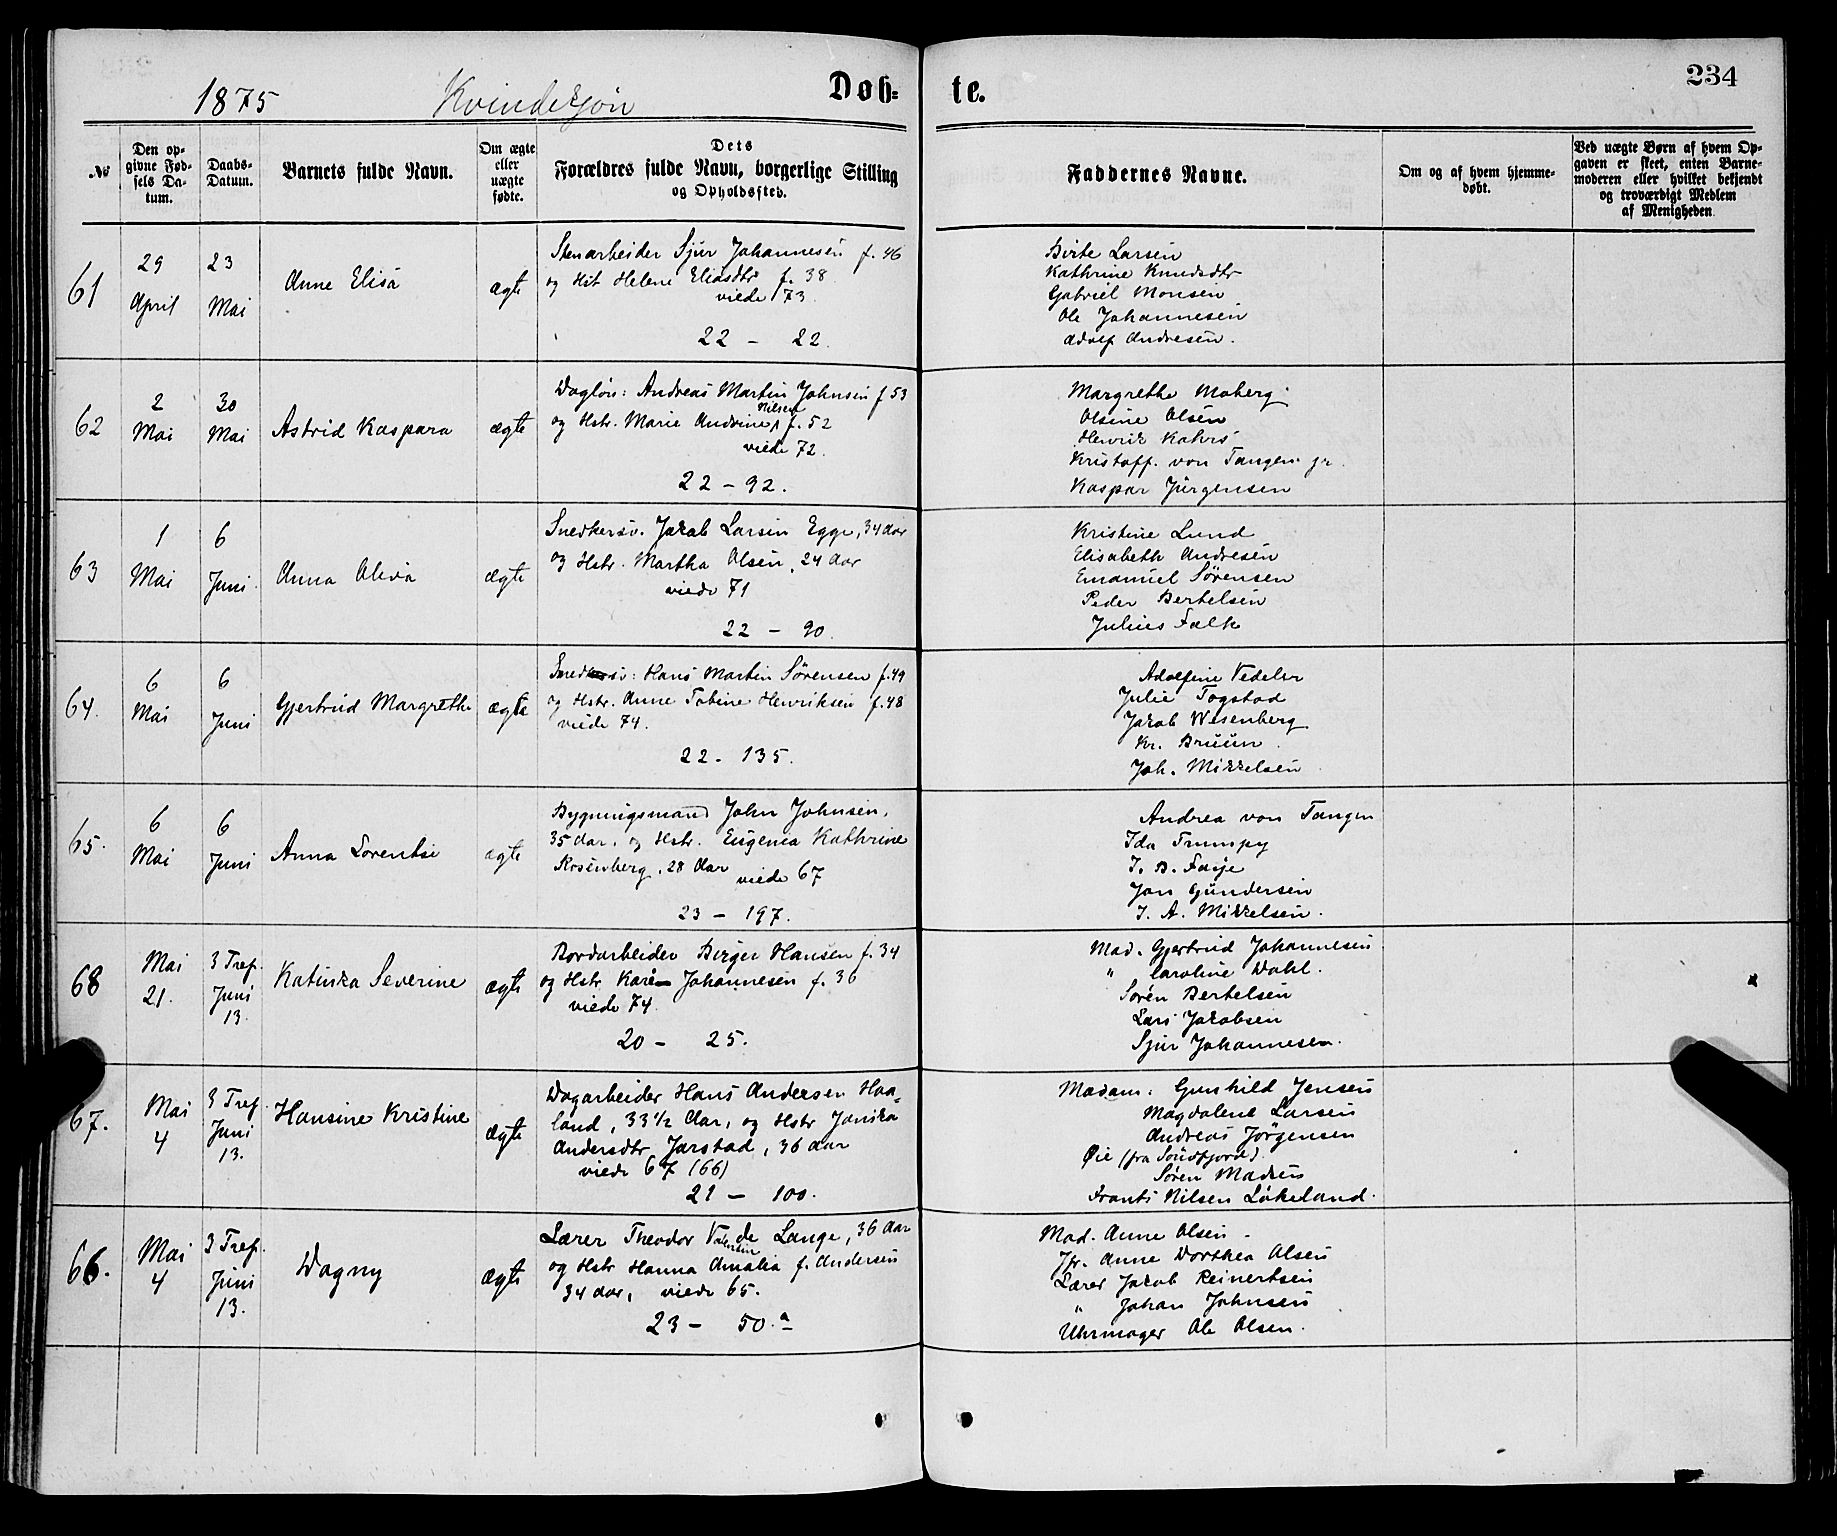 234
1875 Kvindekjøn Døb= te.
No
Den op-
givne Fød-
sels Da-
tum.
Daabs-
Datum.
Barnets fulde Navn.
Om ægte
eller
uægte
fødte.
Dets
Forældres fulde Navn, borgerlige Stilling
og Opholdssted.
Faddernes Navne.
Om og af hvem hjemme-
døbt.
Ved uægte Børn af hvem Op-
gaven er skeet, enten Barne-
moderen eller hvilket bekjendt
og troværdigt Medlem
af Menigheden.
61
29
April
23
Mai
Anne Elisa
ægte
Stenarbeider Sjur Johannesen f. 46
og Hst Helene Eliasdtr f. 38
viede 73.
22 - 22.
Birte Larsen
Kathrine Knudsdtr
Gabriel Monsen
Ole Johannesen
Adolf Andresen.
62
2
Mai
30
Mai
Astrid Kaspara
ægte
Dagløn: Andreas Martin Johnsen f 53
og Hstr. Marie Andrine Nilsen f. 52
viede 72.
22 - 92.
Margrethe Moberg
Olsine Olsen
Henrik Kahrs
Kristoff. von Tangen jr.
Kaspar Jürgensen
63
1
Mai
6
Juni
Anna Oliva
ægte
Snedkersv. Jakob Larsen Egge, 34 Aar
og Hstr. Martha Olsen, 24 Aar
viede 71
22 - 90.
Kristine Lund
Elisabeth Andresen
Emanuel Sørensen
Peder Bertelsen
Julius Falk
64.
6
Mai
6
Juni
Gjertrud Margrethe
ægte
Smedsv: Hans Martin Sørensen f. 49
og Hstr. Anne Tobine Henriksen f. 48
viede 74.
22 - 135.
Adolfine Vedeler
Julie Togstad
Jakob Wesenberg
Kr. Bruun.
Joh. Mikkelsen
65.
6
Mai
6
Juni
Anna Lorentse
ægte
Bygningsmand John Johnsen,
35 Aar, og Hstr. Eugenia Kathrine
Rosenberg, 28 Aar viede 67
23 - 197.
Andrea von Tangen
Ida Trumpy
J. B. Faye
Jan Gundersen
J. A. Mikkelsen.
68
Mai
21.
3 Tref.
Juni
13.
Katinka Severine
ægte
Bordarbeider Birger Hansen f. 34
og Hstr Karen Johannesen f. 36
viede 74.
20 - 25.
Mad. Gjertrud Johannesen
" Caroline Dahl.
Søren Bertelsen
Lars Jakobsen
Sjur Johannesen.
67.
Mai
4
3 Tref.
Juni
13.
Hansine Kristine
ægte
Dagarbeider Hans Andersen Haa-
land, 33 1/2 Aar, og Hstr Janika
Andersdtr Jarstad, 36 Aar
viede 67 (66)
21 - 100.
Madam. Gunhild Jensen
Magdalene Larsen
Andreas Jørgensen
Øie (fra Søndfjord).
Søren Madsen
Frants Nilsen Løkeland.
66.
Mai
4
3 Tref.
Juni
13.
Dagny
ægte
Lærer Theodor Valentin de Lange, 36 Aar
og Hstr Hanna Amalia f. Andersen
34 Aar, viede 65.
23 - 50.a
Mad. Anne Olsen.
Jfr. Anne Dorthea Olsen
Lærer Jakob Reinertsen
" Johan Johnsen
Uhrmager Ole Olsen.